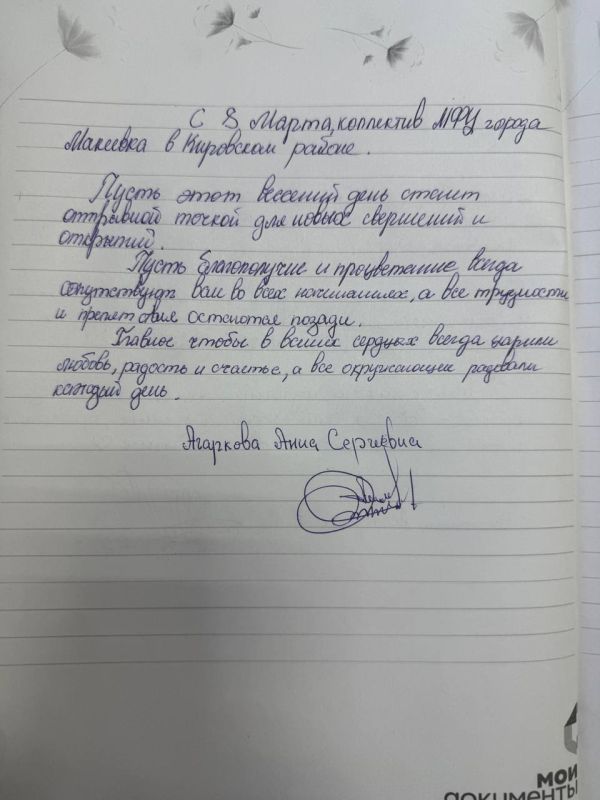 С 8 Марта, коллектив МФЦ города
Макеевка в Кировском районе.
Пусть этот весенний день станет
отправной точкой для новых свершений и
открытий.
Пусть благополучие и процветание всегда
сопутствуют вам во всех начинаниях, а все трудности
и препятствия останутся позади.
Главное чтобы в ваших сердцах всегда царили
любовь, радость и счастье, а все окружающее радовали
каждый день.
Агаркова Анна Сергиевна
мои
документы